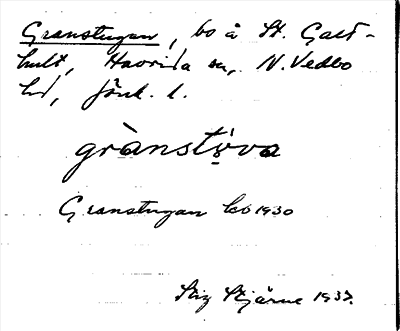 Granstugan, bo å St. Galt-
hult, Haurida sn, N. Vedbo
hd, Jönk. l.
grànstòva
Granstugan kb 1930
Stig Stjärne 1937.